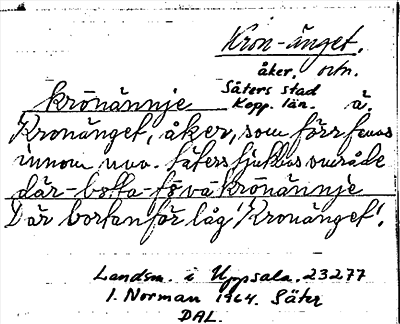 Kron-änget.
åker, ortn.
Säters stad
Kopp. län.
krōnännje ä.
Kronänget, åker, som förr fanns
innom nuv. Säters sjukhus område
där-bσtta-fö va krōnännje
Där bortanför låg 'Kronänget'.
Landsm. i Uppsala. 23277
I. Norman 1964. Säter
DAL.